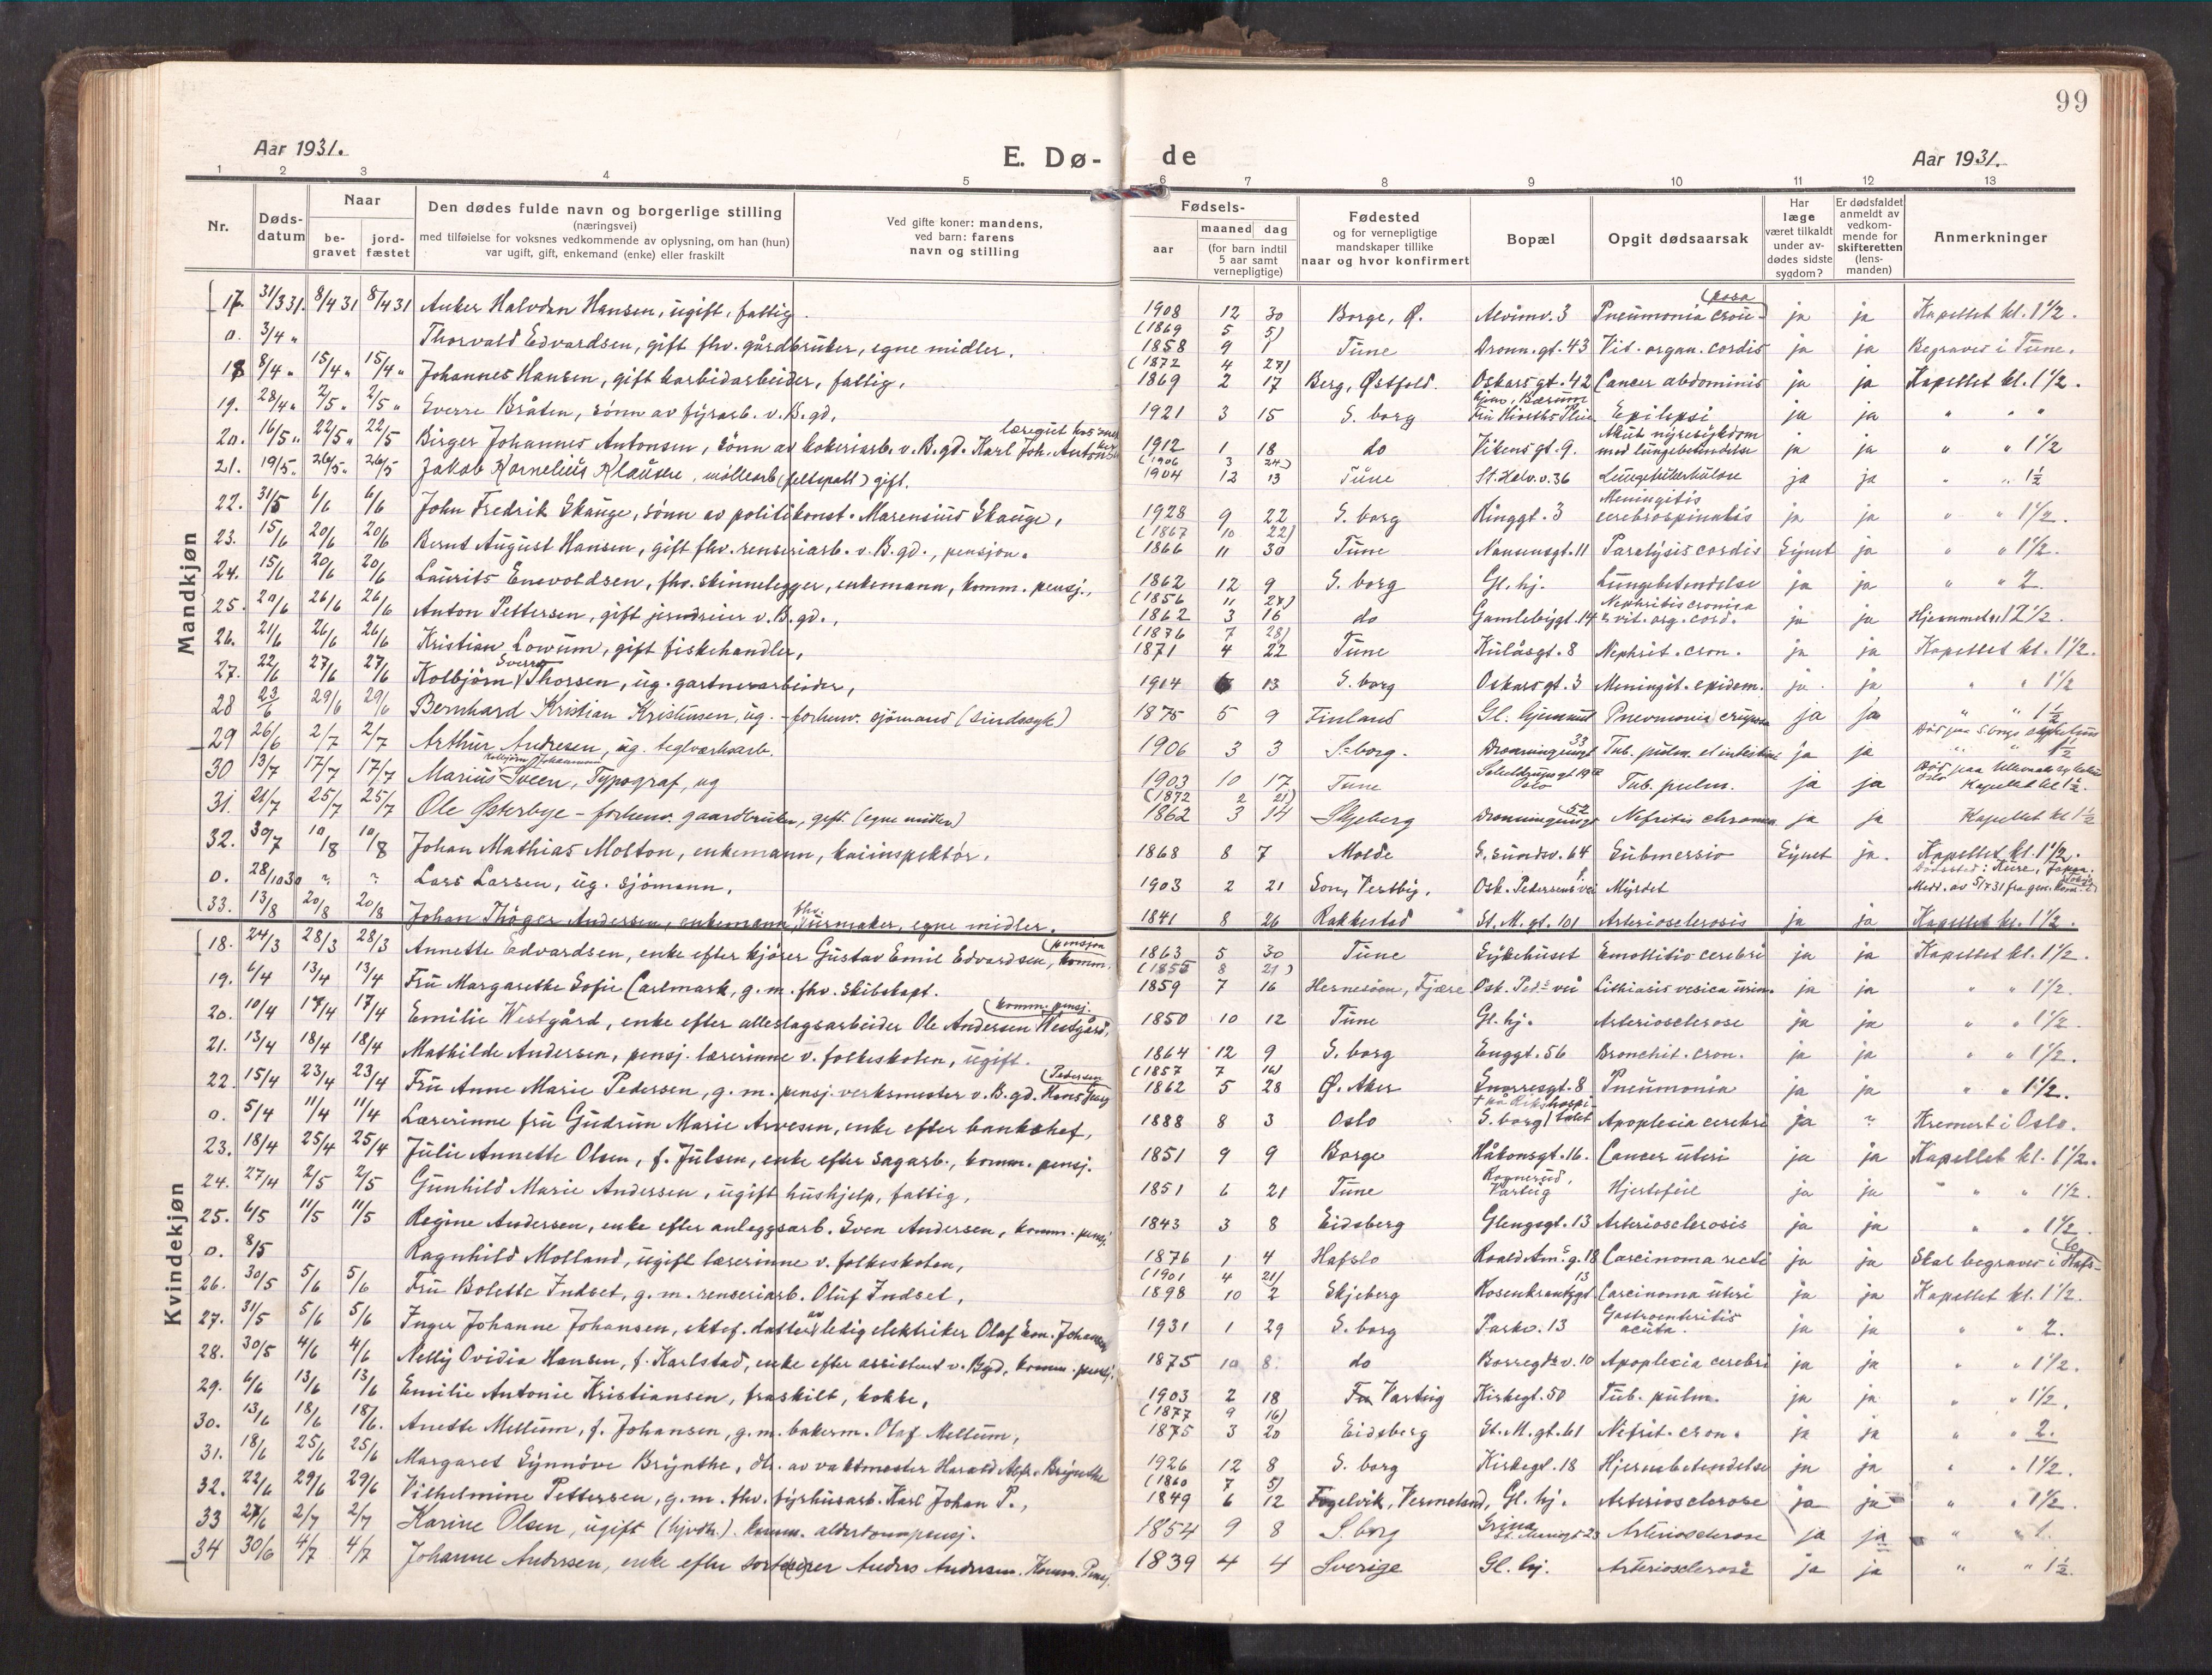 99
Aar 1931.
E. Dø-
de
Aar 1931.
1 2 3 4 5 6 7 8 9 10 11 12 13
Nr.
Døds-
datum
Naar
be-
gravet
jord-
fæstet
Den dødes fulde navn og borgerlige stilling
(næringsvei)
med tilføielse for voksnes vedkommende av oplysning, om han (hun)
var ugift, gift, enkemand (enke) eller fraskilt
Ved gifte koner: mandens,
ved barn: farens
navn og stilling
Fødsels-
aar
maaned dag
(for barn indtil
5 aar samt
vernepligtige)
Fødested
og for vernepligtige
mandskaper tillike
naar og hvor konfirmert
Bopæl
Opgit dødsaarsak
Har
læge
været tilkaldt
under av-
dødes sidste
sygdom?
Er dødsfaldet
anmeldt av
vedkom-
mende for
skifteretten
(lens-
manden)
Anmerkninger
Mandkjøn
17. 31/3 31. 8/4 31 8/4 31 Anker Halvdan Hansen, ugift, fattig. 1908 12 30 Borge, Ø. Alvimv. 3 Pneumonia crou- (posa ja ja Kapellet kl. 1 1/2.
(1869 5 5)
o. 3/4 " Thorvald Edvardsen, gift fhv. gårdbruker, egne midler. 1858 9 1 Tune Dronn.gt. 43 Vit. organ. cordis ja ja Begraves i Tune.
(1872 4 27)
18 8/4 " 15/4 " 15/4 " Johannes Hansen, gift karbidarbeider, fattig. 1869 2 17 Berg, Østfold. Oskarsgt. 42 Cancer abdominis ja ja Kapellet kl. 1 1/2.
19. 28/4 " 2/5 " 2/5 " Sverre Bråten, sønn av fyrarb. v. B.gd. 1921 3 15 S. borg Epilepsi ja ja " " "
20. 16/5 " 22/5 " 22/5 Birger Johannes Antonsen, sønn av kokeriarb. v. B.gd. Karl Joh. Antonsen 1912 1 18 do Vikensgt. 9. Akut nyresykdom med lungebetendelse ja ja " " 1 1/2
(1906 3 24)
21. 19/5 " 26/5 " 26/5 Jakob Kornelius Klausen, møllearb (feltspatt) gift. 1904 12 13 Tune St. Halv. v. 36 Lungetuberkulose ja ja " " 1 1/2
22. 31/5 6/6 6/6 John Fredrik Skauge, sønn av politikonst. Marensius Skauge, 1928 9 22 S. borg Ringgt. 3 Meningitis cerebrospinalis ja ja " " 1 1/2.
(1867 10 22)
23. 15/6 20/6 20/6 Bernt August Hansen, gift fhv. renseriarb. v. B.gd., pensjon. 1866 11 30 Tune Nansensgt. 11 Paralysis cordis Synet ja " " 1 1/2.
24. 15/6 20/6 20/6 Laurits Ensvoldsen, fhv. skinnelegger, enkemann, komm. pensj., 1862 12 9 S. borg Gl. hj. Lungebetendelse ja ja " " 2
(1856 11 27)
25. 20/6 26/6 26/6 Anton Pettersen, gift jerndreier v. B.gd., 1862 3 16 do Gamlebygt. 14 Nephritis cronica & vit. org. cord. ja ja Hjemmet kl 12 1/2.
(1876 7 28)
26. 21/6 26/6 26/6 Kristian Lowum, gift fiskehandler, 1871 4 22 Tune Kulåsgt. 8 Nephrit. cron. ja ja Kapellet kl. 1 1/2.
27. 22/6 27/6 27/6 Kolbjørn Sverre Thorsen, ug. gartnerarbeider, 1914 13 S. borg Oskarsgt. 3 Meningit. epidem. ja ja " " 1 1/2
28 23/6 29/6 29/6 Bernhard Kristian Kristensen, ug. - forhenv. sjømand (sindssyk) 1875 5 9 Finland Gl. hjemmet Pnevmonia crupøs ja ja " " 1 1/2
29 26/6 2/7 2/7 Arthur Andresen, ug. teglverksarb. 1906 3 3 S-borg. Dronningensgt 33 Tub. pulm. et intestin ja ja " " 1 1/2
30 13/7 17/7 17/7 Marius Kolbjørn Johannes Sveen, Typograf, ug 1903 10 17 Tune Oslo Tub. pulm. ja ja Kapellet kl 1 1/2.
(1872 2 21)
31. 21/7 25/7 25/7 Ole Østerbye - forhenv. gaardbruker, gift. (egne midler) 1862 3 14 Skjeberg Dronningensgt 52 Nefritis chronica ja ja Kapellet kl 1 1/2
32. 30/7 10/8 10/8 Johan Mathias Molton, enkemann, kaiinspektør. 1868 8 7 Molde S. Sundsv. 64 Submersio Synet ja. Kapellet kl. 1 1/2.
o. 28/10 30 ? ? Lars Larsen, ug. sjømann. 1903 2 21 Son, Vestby. Osk. Pedersens vei Myrdet Dødssted: Kure, Japan. Medd. av 5/7 31 fra gen.kons. i Tokyo
33. 13/8 20/8 20/8 Johan Thøger Andersen, enkemann, fhv. urmaker, egne midler. 1841 8 26 Rakkestad St. M. gt. 101 Arteriosclerosis ja ja Kapellet kl. 1 1/2.
Kvindekjøn
18. 24/3 28/3 28/3 Annette Edvardsen, enke efter kjører Gustav Emil Edvardsen, komm. (pensjon 1863 5 30 Tune Sykehuset Emollitio cerebri ja ja Kapellet kl. 1 1/2.
(1855 8 21)
19. 6/4 13/4 13/4 Fru Margarethe Sofie Carlmark, g. m. fhv. skibskapt. 1859 7 16 Hernesøen, Fjære Osk. Ped.s vei Lithiasis vesica urin. ja ja " " 1 1/2.
20. 10/4 17/4 17/4 Emilie Westgård, enke efter alleslagsarbeider Ole Andersen Westgård, (komm. pensj. 1850 10 12 Tune Gl. hj. Arteriosclerose ja ja " " 1 1/2.
21. 13/4 18/4 18/4 Mathilde Andersen, pensj. lærerinne v. folkeskolen, ugift. 1864 12 9 S. borg Enggt. 56 Bronchit. cron. ja ja " " 1 1/2.
(1857 7 16)
22. 15/4 23/4 23/4 Fru Anne Marie Pedersen, g. m. pensj. verksmester v. B.gd. Hans Jerg (Pedersen 1862 5 28 Ø. Aker Snorresgt. 8 Pneumonia ja ja " " 1 1/2.
o. 5/4 11/4 11/4 Lærerinne fru Gudrun Marie Arvesen, enke efter bankchef, 1888 8 3 Oslo † på Rikshospi- S. borg (talet Apoplexia cerebri ja ? Kremert i Oslo.
23. 18/4 25/4 25/4 Julie Annette Olsen, f. Julsen, enke efter sagarb., komm. pensj. 1851 9 9 Borge Håkonsgt. 16. Cancer uteri ja ja Kapellet kl. 1 1/2.
24. 27/4 2/5 2/5 Gunhild Marie Andersen, ugift hushjelp, fattig. 1851 6 21 Tune Rognerud, Varteig Hjertefeil ja ja " " " 1 1/2.
25. 6/5 11/5 11/5 Regine Andersen, enke efter anleggsarb. Sven Andersen, komm. pensj. 1843 3 8 Eidsberg Glengsgt. 13 Arteriosclerosis ja ja " " 1 1/2.
o. 8/5 Ragnhild Molland, ugift lærerinne v. folkeskolen, 1876 1 4 Hafslo Roald Am.s g. 18 Carcinoma recti ja ja Skal begraves i Hafs- (lo
(1901 4 21)
26. 30/5 5/6 5/6 Fru Bolette Indset, g. m. renseriarb. Oluf Indset, 1898 10 2 Skjeberg Rosenkrantzgt 13 Carcinoma uteri ja ja Kapellet kl. 1 1/2.
27. 31/5 5/6 5/6 Inger Johanne Johansen, ektef. datter av ledig elektriker Olaf Em. Johansen 1931 1 29 S. borg Parkv. 13 Gastroenteritis acuta. ja ja " " 2.
28. 30/5 4/6 4/6 Nelly Ovidia Hansen, f. Karlstad, enke efter assistent v. Bgd, komm. pensj. 1875 10 8. do Borregårdsv. 10 Apoplexia cerebri ja ja " " 1 1/2.
29. 6/6 13/6 13/6 Emilie Antonie Kristiansen, fraskilt, kokke, 1903 2 18 Varteig Kirkegt. 50 Tub. pulm. ja ja " " 1 1/2.
(1877 9 16)
30. 13/6 18/6 18/6. Anette Mellum, f. Johansen, g. m. bakerm. Olaf Mellum, 1875 3 20 Eidsberg St. M. gt. 61 Nefrit. cron. ja ja " " 2.
31. 18/6 25/6 25/6 Margaret Synnøve Brynthe, dtr. av vaktmester Harald Alfr. Brynthe 1926 12 8 S. borg Kirkegt. 18 Hjernebetendelse ja ja " " 1 1/2.
(1860 7 5)
32. 22/6 29/6 29/6 Vilhelmine Pettersen, g. m. fhv. fyrhusarb. Karl Johan P., 1849 6 12 Fogelvik, Vermeland, Gl. hj. Arteriosclerose ja ja " " 1 1/2.
33 27/6 2/7 2/7 Karine Olsen, ugift (hjvdh.) komm. alderdomspensj. 1854 9 8 S. borg Arteriosclerose ja ja " " 1.
34 30/6 4/7 4/7 Johanne Andersen, enke efter sorterer Andres Andersen. Komm. Pensj. 1839 4 4 Sverige Gl. hj. Arteriosclerose ja ja " " 1 1/2.